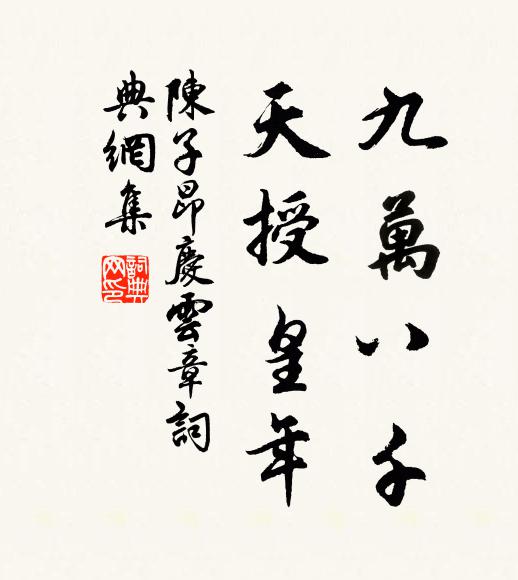 九萬八千
天授皇年
陳子昂慶雲章詞
典網集
詞典
网印